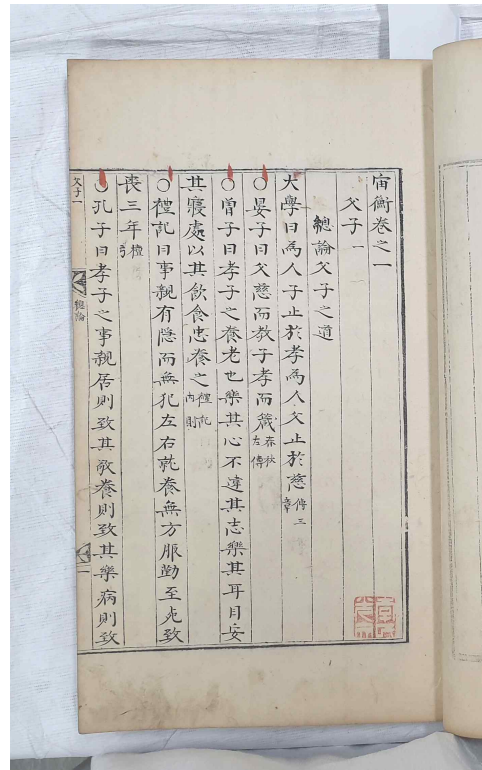 宙衡卷之一
父子一
總論父子之道
大學曰為人子止於孝為人父止於慈傳三章
○晏子曰父慈而教子孝而箴春秋左傳
○曾子曰孝子之養老也樂其心不違其志樂其耳目安
其寢處以其飲食忠養之禮記內則
○禮記曰事親有隱而無犯左右就養無方服勤至死致
喪三年檀弓
○孔子曰孝子之事親居則致其敬養則致其樂病則致
父子一
總論
一